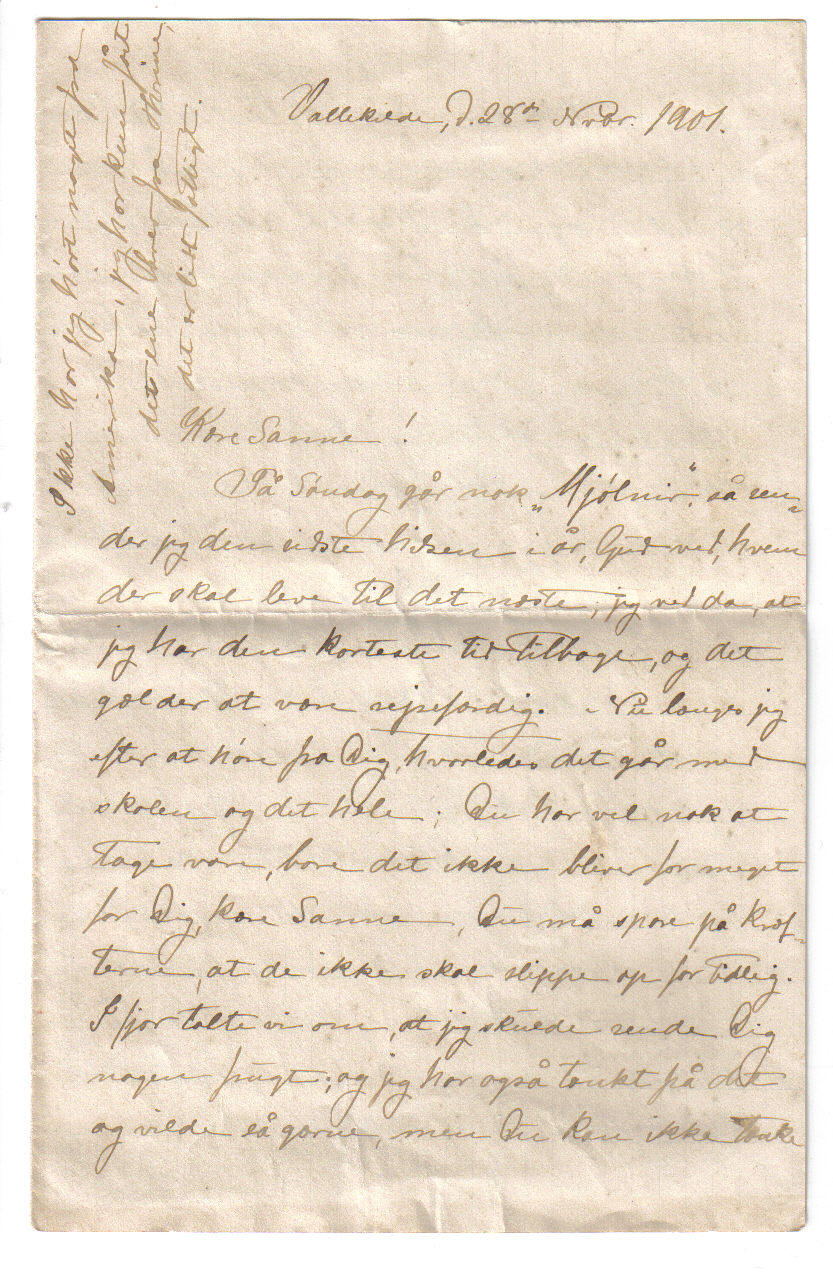 Vallekilde, d. 28de Novbr. 1901.
Kære Sanne!
På Søndag går nok „Mjølnir“, så sen-
der jeg den sidste hilsen i år, Gud ved, hvem
der skal leve til det næste, jeg ved da, at
jeg har den korteste tid tilbage, og det
gælder at være rejsefærdig. Nu længes jeg
efter at høre fra Dig, hvorledes det går med
skolen og det hele; Du har vel nok at
tage vare, bare det ikke bliver for meget
for Dig, kære Sanne, Du må spare på kræf-
terne, at de ikke skal slippe op for tidlig.
I fjor talte vi om, at jeg skulde sende Dig
nogen frugt; og jeg har også tænkt på det
og vilde så gærne, men Du kan ikke tænke
Ikke har jeg hørt noget fra
Amerika, jeg har kun fået
det ene brev fra Thrine,
det er lidt fattigt.